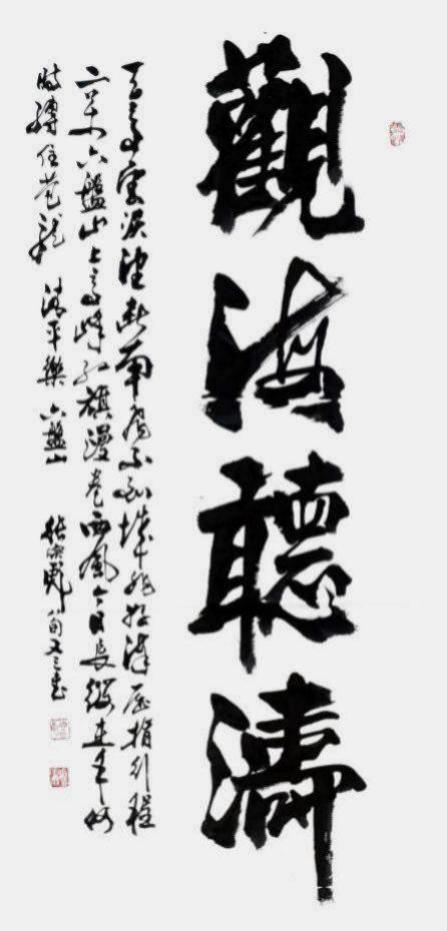 觀海聽濤
天高雲淡望斷南飛雁不到長城非好漢屈指行程
二萬六盤山上高峰紅旗漫卷西風今日長纓在手何
時縛住蒼龍 清平樂 六盤山